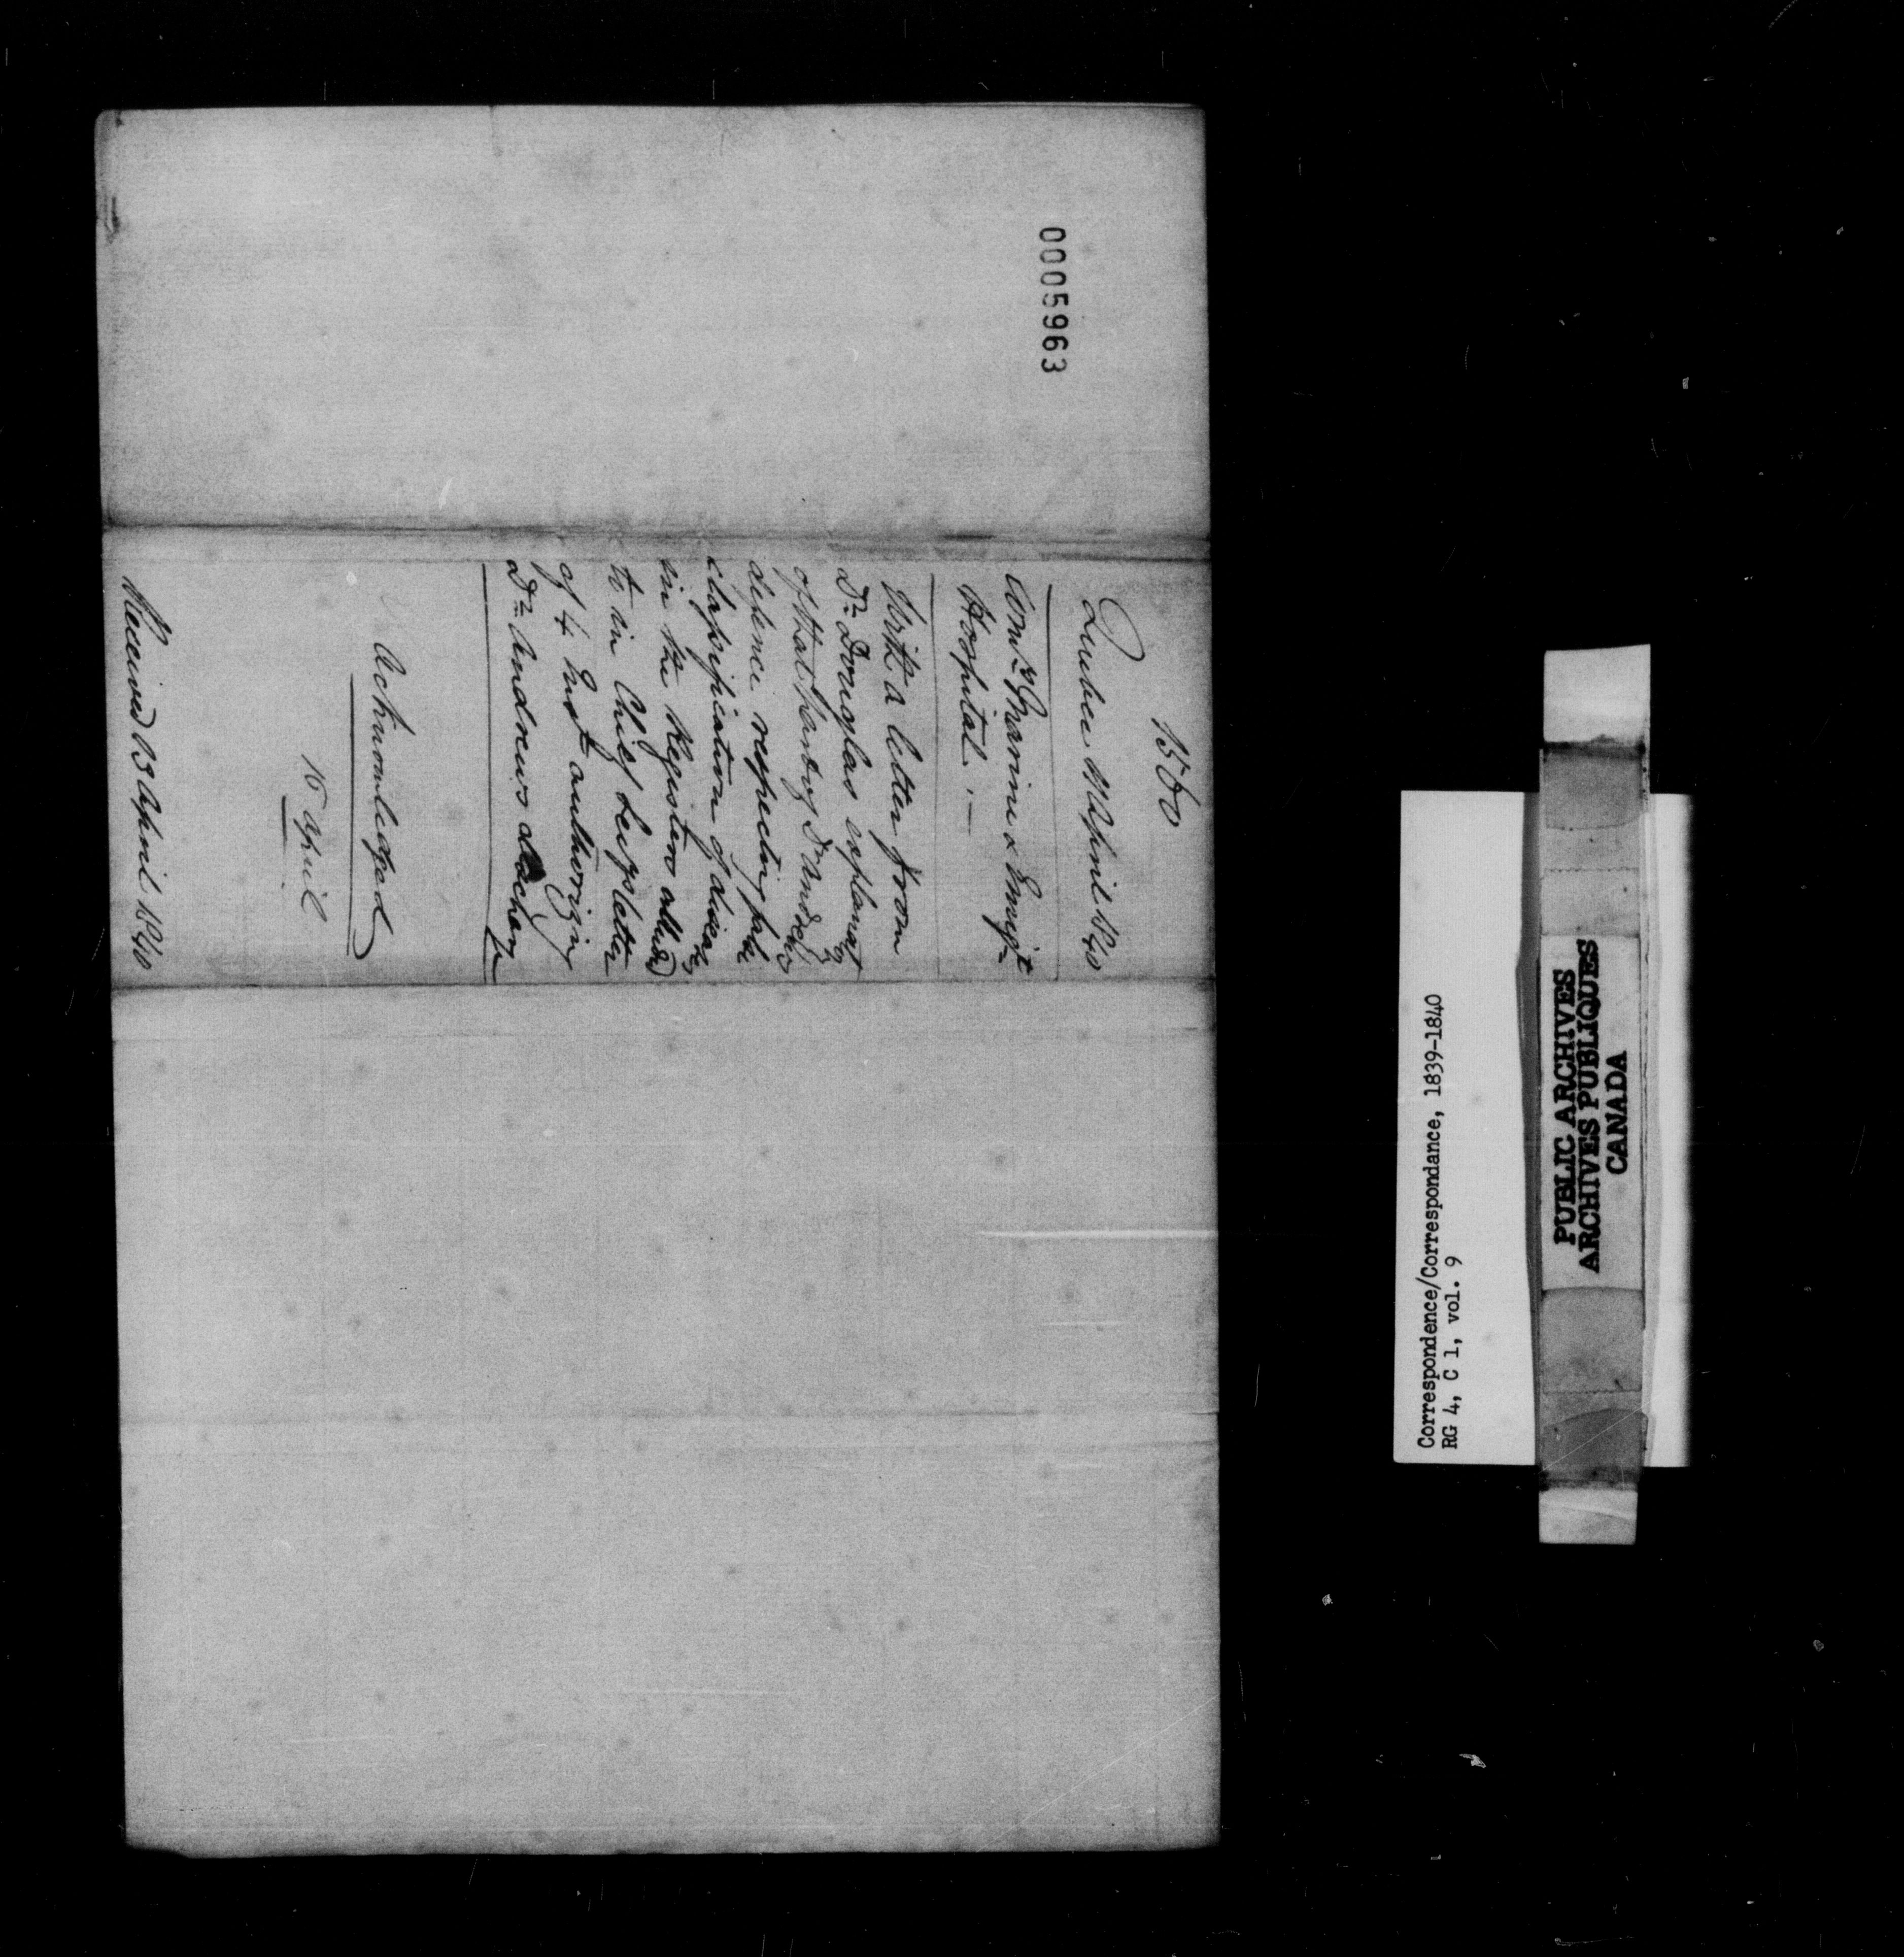 00005963
1560
Quebec 11 April 1840
Comrs Marine & Emigt
Hospital. —
With a letter from
Dr Douglas explanaty
of that part of Dr Andrews
defence respecting false
classification of diseases
in the Registers alluded
to in Chief Secys letter
of 4 Inst authorizing
Dr Andrews discharge
Acknowledged
16 April
Received 13 April 1840
Correspondence/Correspondance, 1839-1840
RG 4, C 1, vol. 9
PUBLIC ARCHIVES
ARCHIVES PUBLIQUES
CANADA